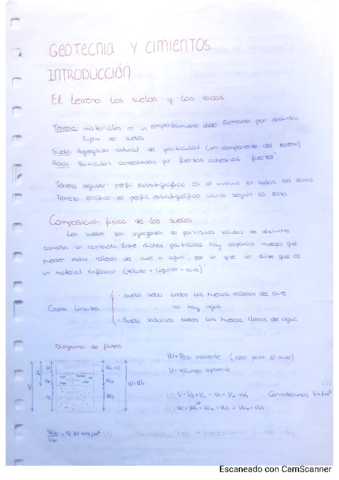 GEOTECNIA Y CIMIENTOS
INTRODUCCIÓN
El terreno los suelos y las rocas
Terreno: materiales en un emplazamiento dado formado por distintos
tipos de suelos
Suelo: Agregado natural de partículas (un componente del terreno)
Roca: Partículas conectadas por fuerzas cohesivas fuertes
Terreno regular perfil estratigráfico es el mismo en todas las zonas
Terreno errático el perfil estratigráfico varía según la zona
Composición física de los suelos
Los suelos son agregados de partículas sólidas de distintos
tamaños en contacto. Entre dichas partículas hay espacios huecos que
pueden estar rellenos de aire o agua, por lo que se dice que es
un material trifásico (sólido + líquido + aire)
Casos límites
- Suelo seco todos los huecos rellenos de aire
no hay agua
- Suelo saturado todos los huecos llenos de agua
Diagrama de fases
W = Peso
V = Volumen aparente
Escaneado con CamScanner